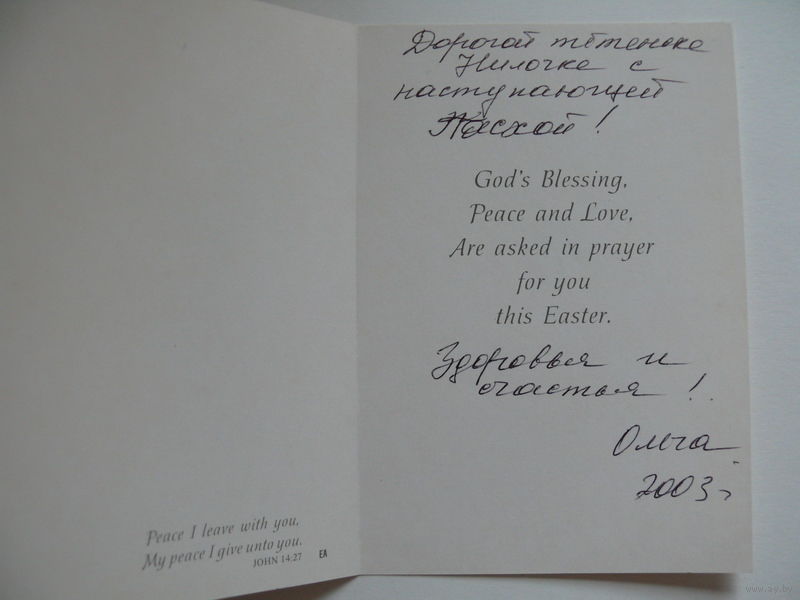 Дорогой тётеньке
Нилочке с
наступающей
Пасхой!
God's Blessing,
Peace and Love,
Are asked in prayer
for you
this Easter.
Здоровья и
счастья!
Ольга
2003 г
Peace I leave with you,
My peace I give unto you.
JOHN 14:27
EA
www.ay.by